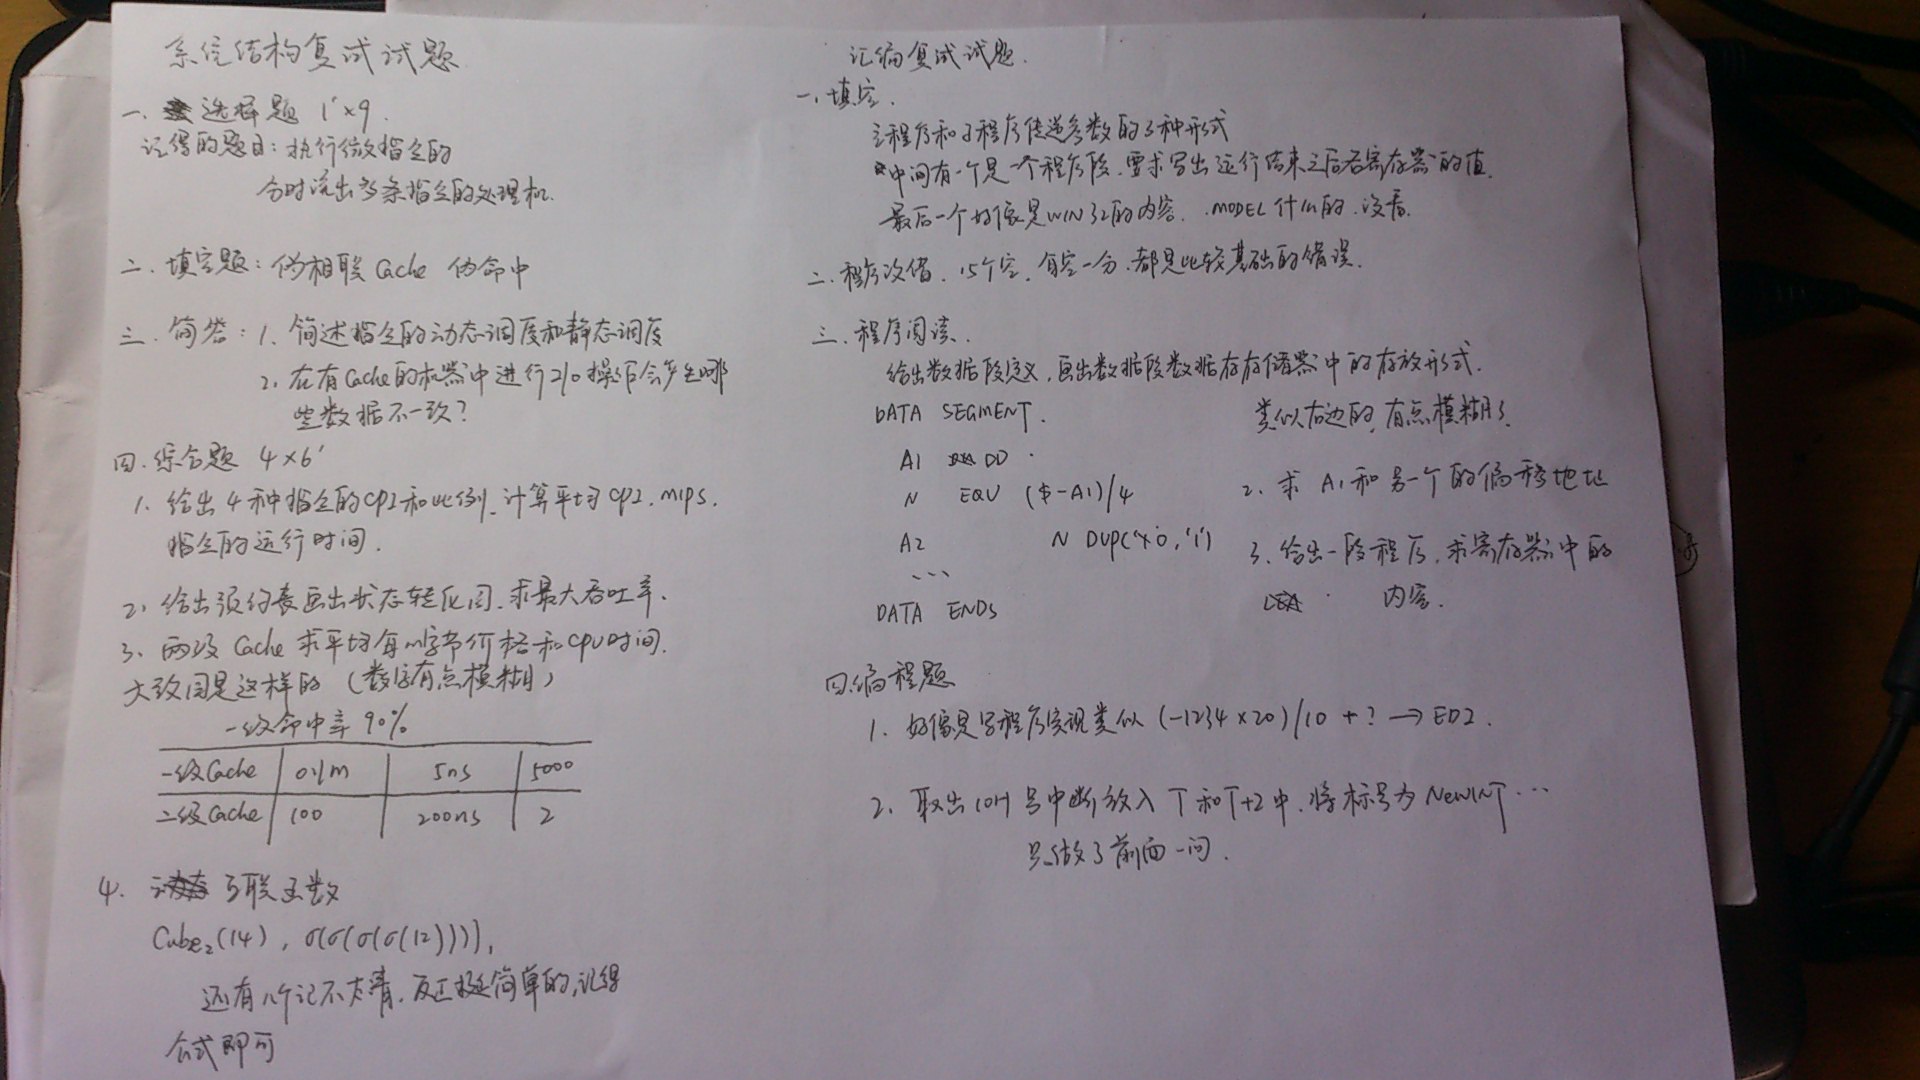 系统结构复试试题
一、选择题 1'×9.
记得的题目：执行微指令的
分时流出多条指令的处理机.
二. 填空题：伪相联 Cache 伪命中
三. 简答：1. 简述指令的动态调度和静态调度
2. 在有Cache的机器中进行I/O操作会产生哪
些数据不一致？
四. 综合题 4×6'
1. 给出4种指令的CPI和比例. 计算平均CPI. MIPS.
指令的运行时间.
2. 给出预约表画出状态转化图. 求最大吞吐率.
3. 两级 Cache 求平均每M字节价格和CPU时间.
大致图是这样的 (数字有点模糊)
一级命中率 90%
一级Cache 5ns 5000
二级Cache 100 200ns 2
4. 互联函数
Cube₂(14) , σ(σ(σ(σ(12)))),
还有几个记不太清, 反正挺简单的, 记得
公式即可
汇编复试试题.
一、填空.
主程序和子程序传递参数的3种形式
中间有一个是一个程序段. 要求写出运行结束之后各寄存器的值.
最后一个好像是WIN32的内容. .MODEL 什么的. 没看.
二. 程序改错. 15个空. 每空一分. 都是比较基础的错误.
三. 程序阅读.
给出数据段定义, 画出数据段数据在存储器中的存放形式.
DATA SEGMENT. 类似右边的, 有点模糊了.
A1 DD
N EQU ($-A1)/4
A2 N DUP(
...
DATA ENDS
2. 求 A1和另一个的偏移地址
3. 给出一段程序. 求寄存器中的
内容.
四.编程题
1. 好像是写程序实现类似 (-1234×20)/10 + ? → EDI.
2. 取出10H号中断放入 T 和T+2中. 将标号为 NEWINT …
只做了前面一问.